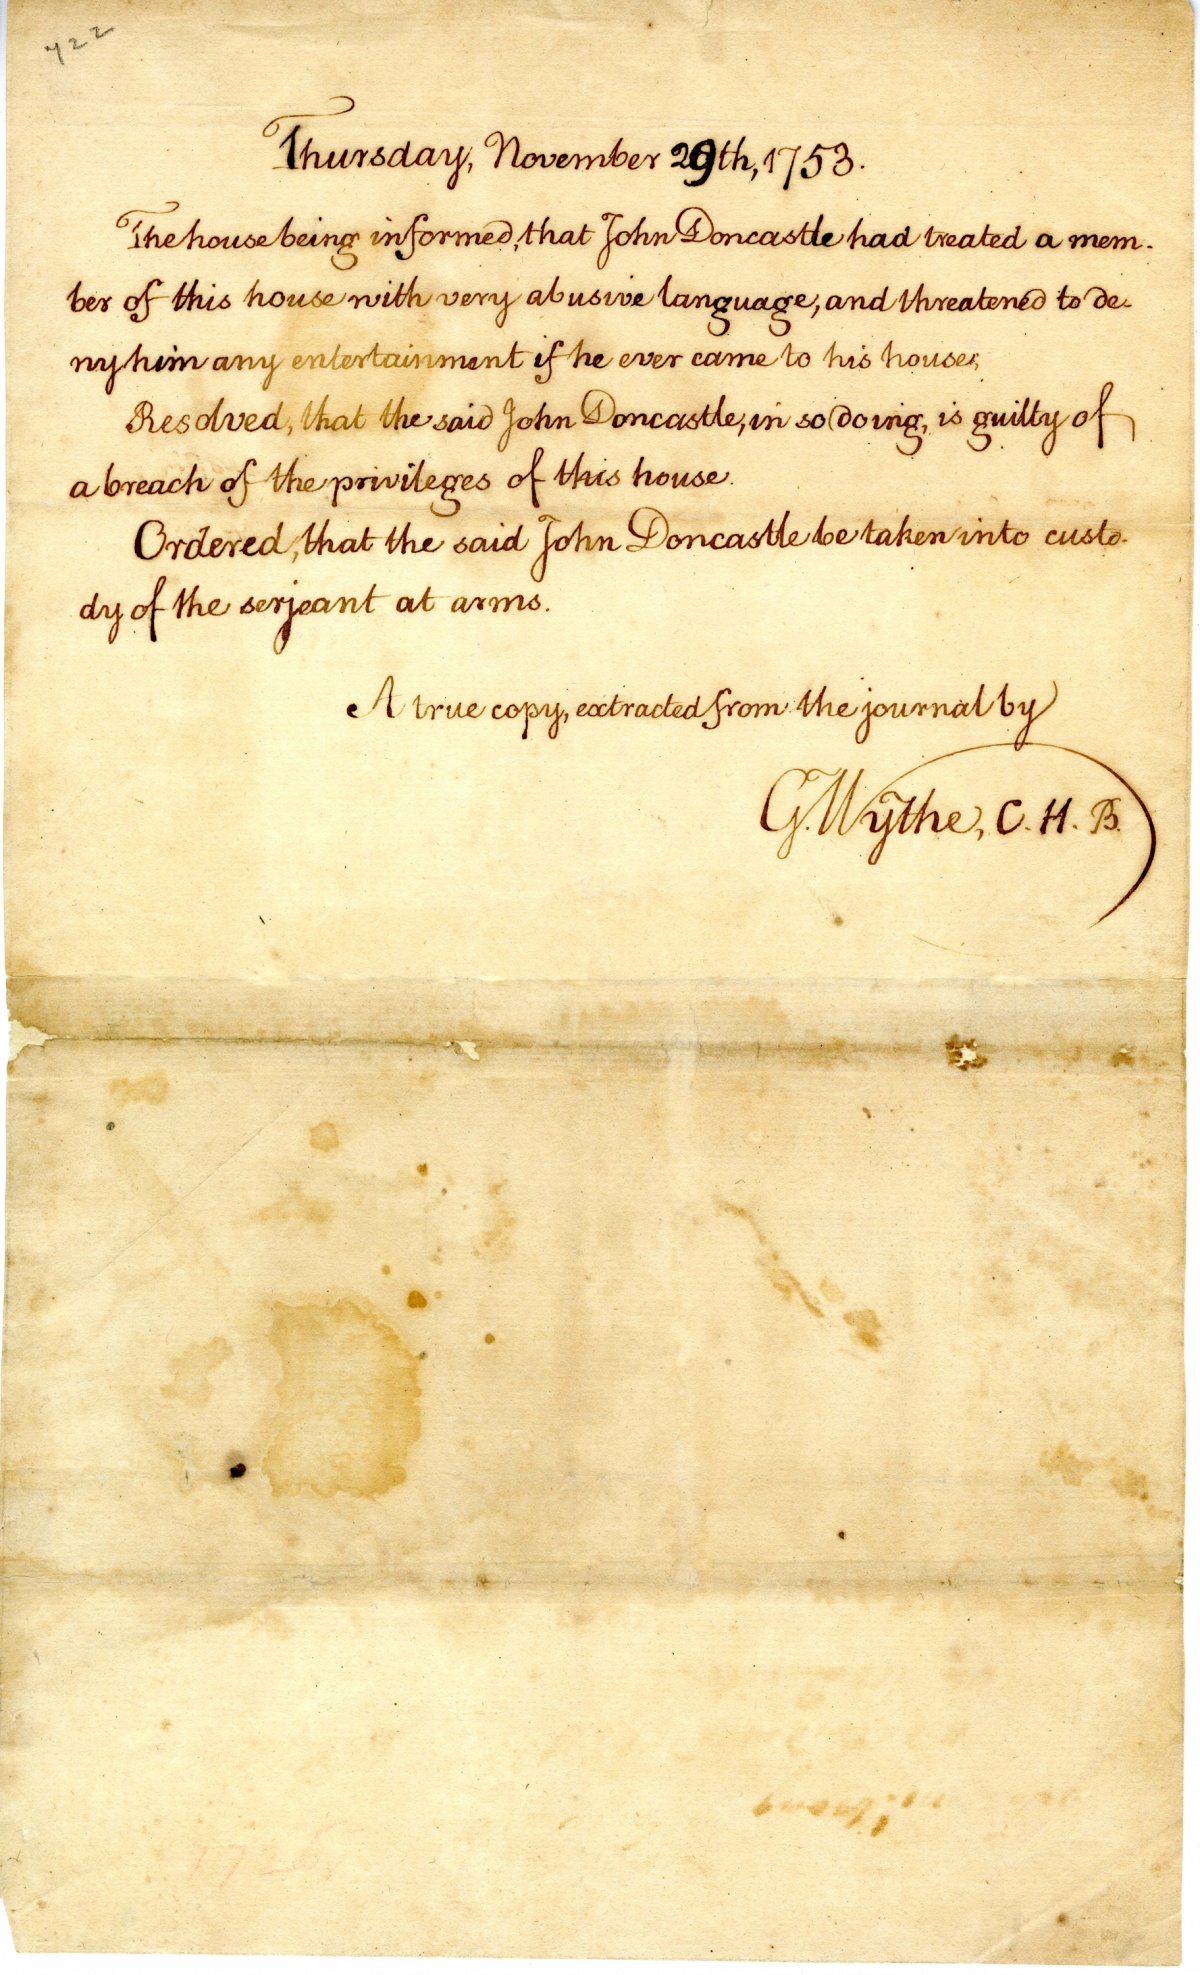 722
Thursday, November 29th, 1753.
The house being informed, that John Doncastle had treated a mem-
ber of this house with very abusive language, and threatened to de-
ny him any entertainment if he ever came to his house,
Resolved, that the said John Doncastle, in so doing, is guilty of
a breach of the privileges of this house.
Ordered, that the said John Doncastle be taken into custo-
dy of the serjeant at arms.
A true copy, extracted from the journal by
G. Wythe, C. H. B.